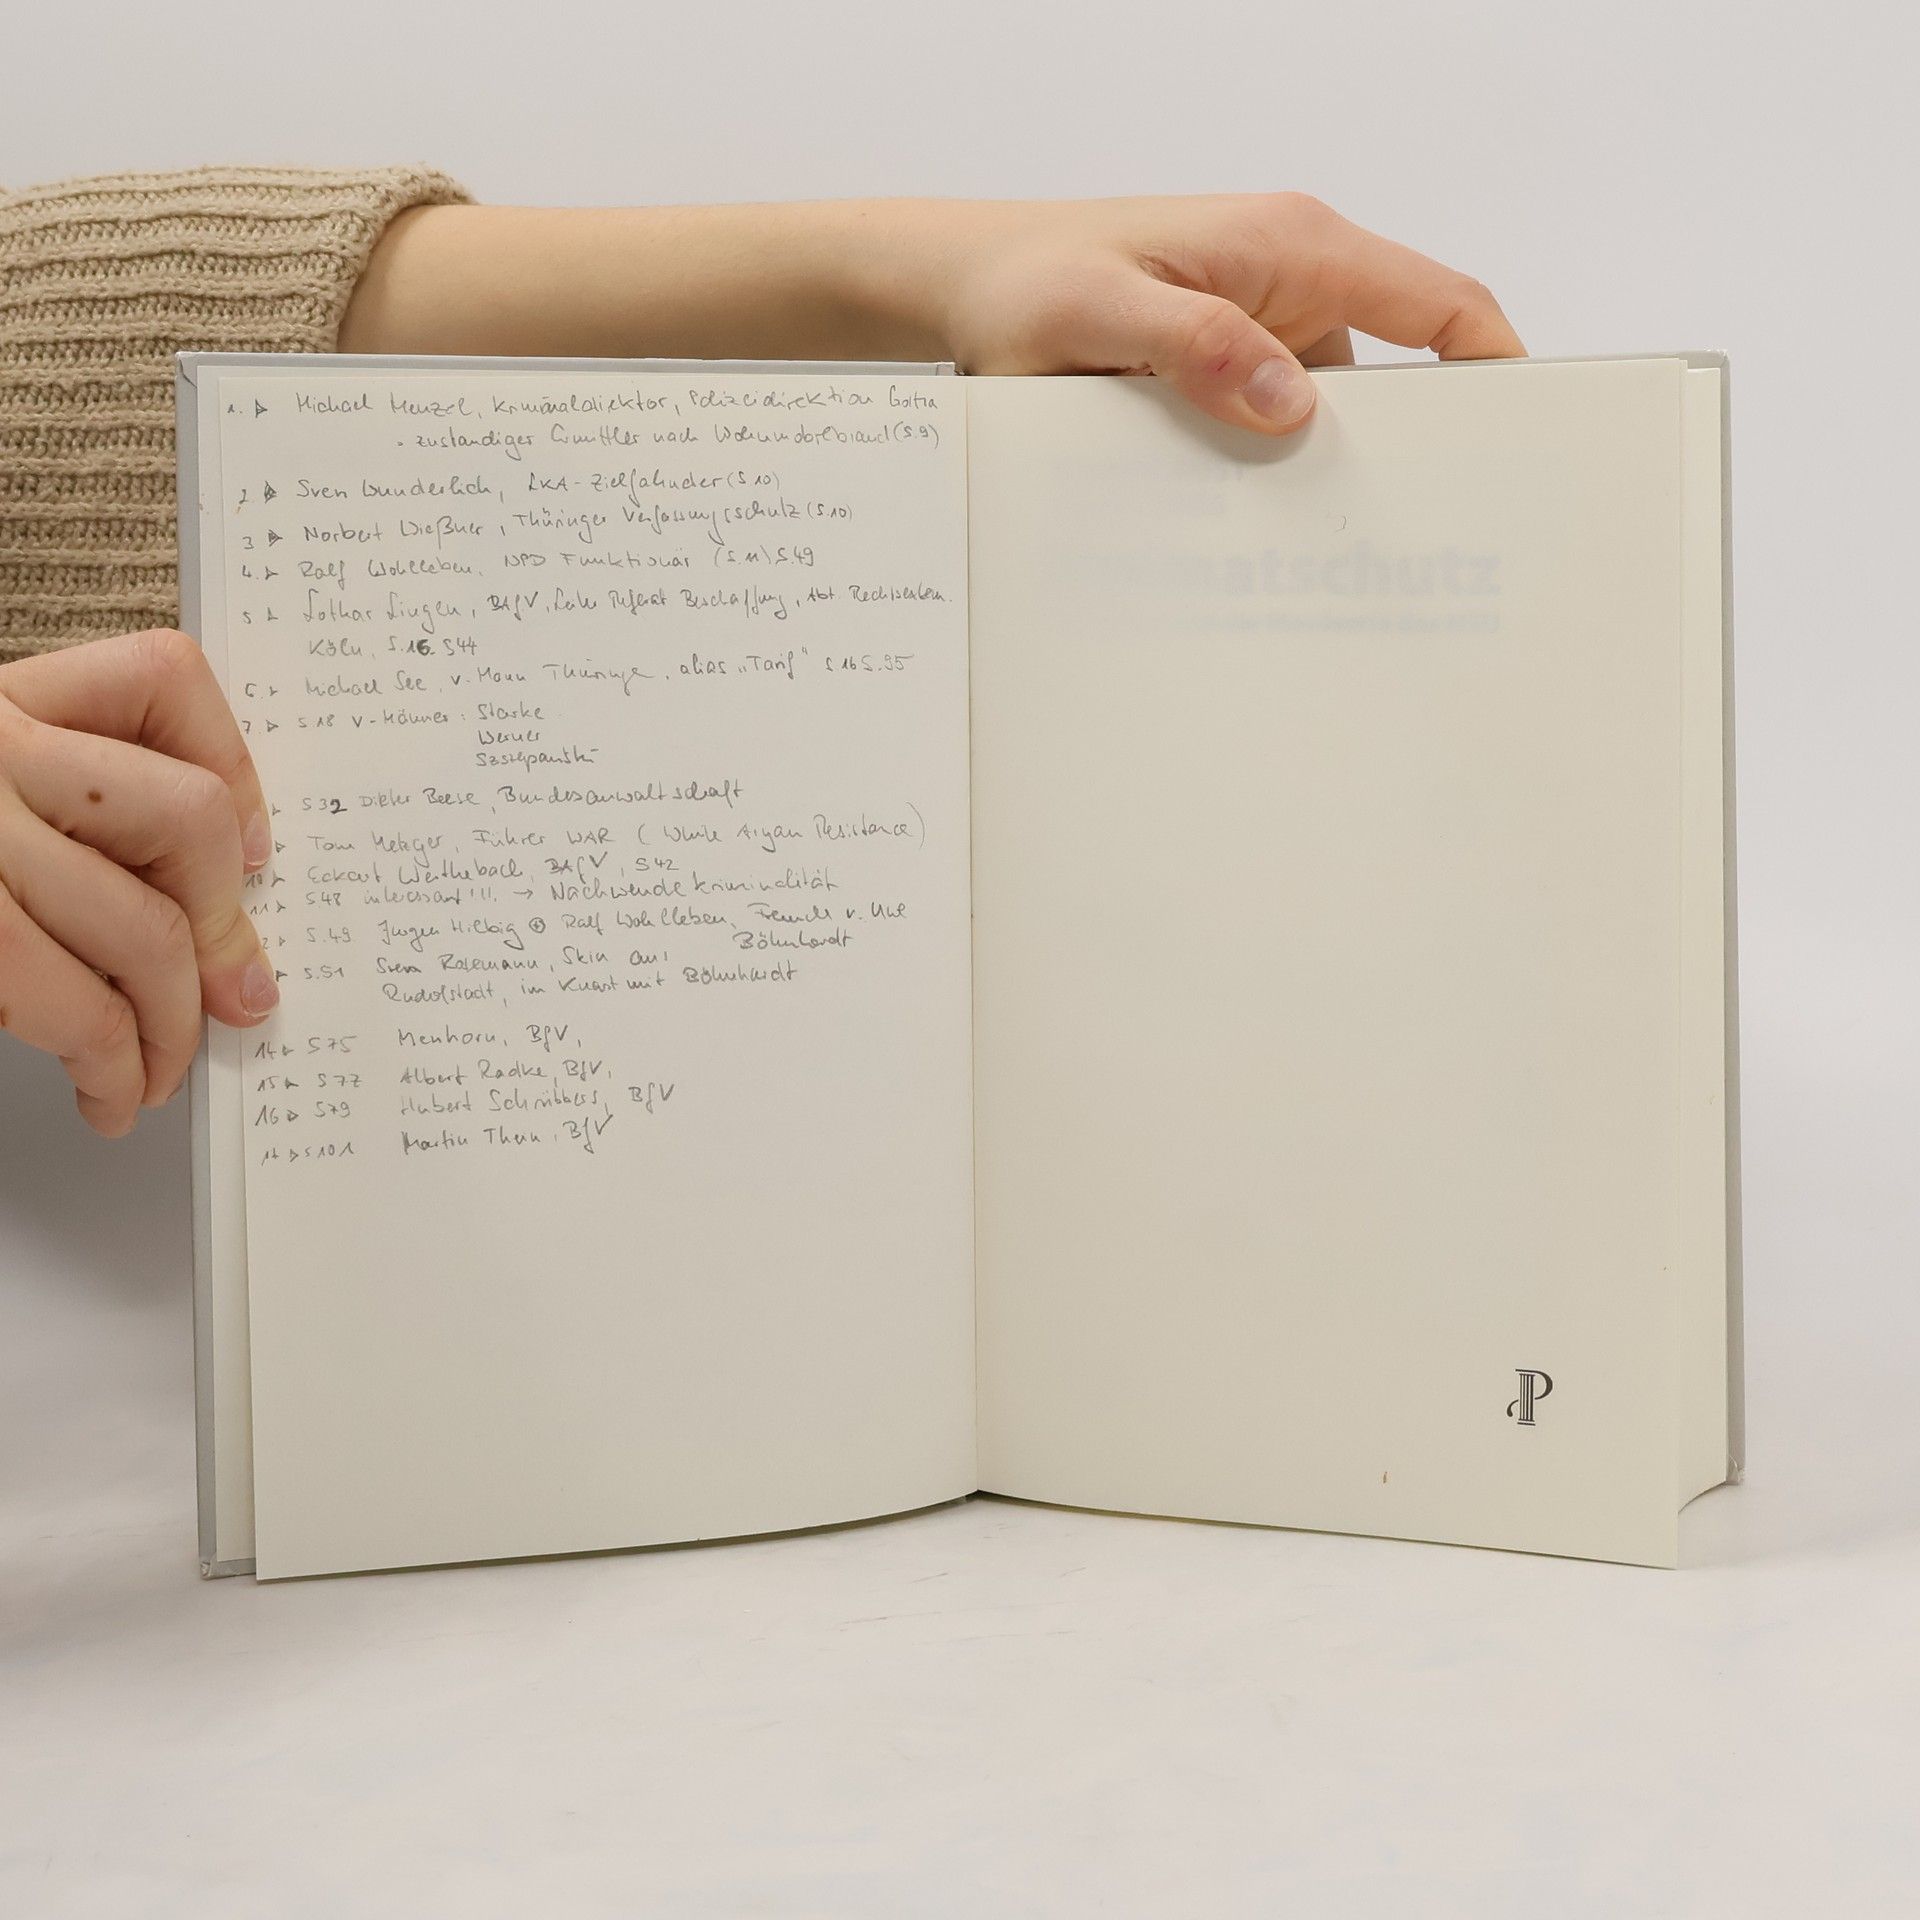 1. Michael Menzel, Kriminaldirektor, Polizeidirektion Gotha
- zuständiger Ermittler nach Wohnmobilbrand (S.9)
2. Sven Wunderlich, LKA-Zielfahnder (S 10)
3 Norbert Wießner, Thüringer Verfassungsschutz (S.10)
4. Ralf Wohlleben, NPD Funktionär (S.11) S.49
5 Lothar Lingen, BAfV, Referat Beschaffung, Abt. Rechtsextrem.
Köln, S.16 S44
6. Michael See, V-Mann Thüringen, alias "Tarif" S 16 S.95
7 S 18 V-Männer: Starke
Werner
Szczepanski
S 32 Dieter Beese, Bundesanwaltschaft
Tom Metzger, Führer WAR (White Aryan Resistance)
10 Eckart Werthebach, BAfV, S 42
11 S48 interessant!!! → Nachwendekriminalität
2 S.49 Jürgen Helbig Ralf Wohlleben, Freunde v. Uwe
Böhnhardt
S.51 Sven Rosemann, Skin aus
Rudolstadt, im Knast mit Böhnhardt
14 S 75 Menhorn, BfV,
15 S 77 Albert Radke, BfV,
16 S79 Hubert Schrübbers, BfV
17 S 101 Martin Thein, BfV
P